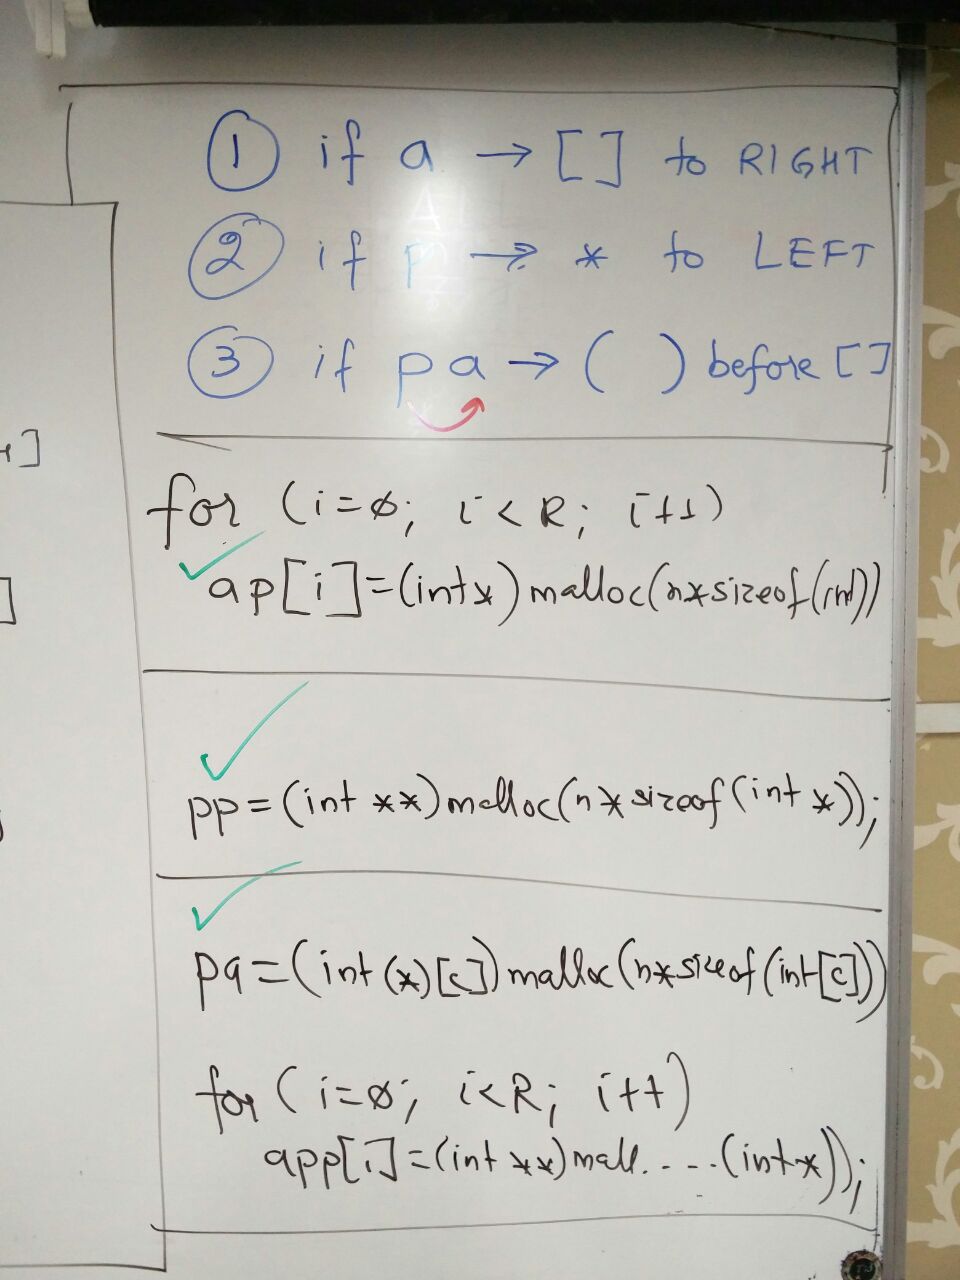 ① if a → [ ] to RIGHT
② if p → * to LEFT
③ if pa → ( ) before [ ]
for (i=ø; i<R; i++)
ap[i]=(int*)malloc(n*sizeof(int))
pp=(int **)malloc(n*sizeof(int *));
pa=(int(*)[c])malloc(n*sizeof(int[c]))
for (i=ø; i<R; i++)
app[i]=(int **)mall.....(int*));
]
]